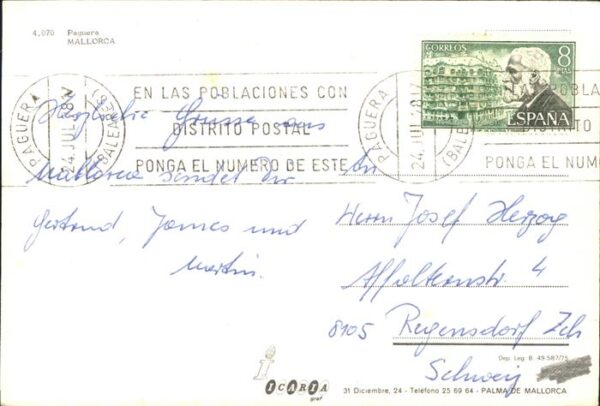 4.070 Paguera
MALLORCA
CORREOS 8 PTAS
ESPAÑA
PAGUERA
24 JUL
(BALEARES)
EN LAS POBLACIONES CON
DISTRITO POSTAL
PONGA EL NUMERO DE ESTE
PAGUERA
24 JUL
(BALE
LA POBLA
DISTRITO
PONGA EL NUM
Herzliche Grüsse aus
Mallorca sendet Dir
Gertrud, James und
Martin.
An
Herrn Josef Herzog
Affolternstr. 4
8105 Regensdorf Zch
Schweiz
Dep. Leg. B. 49.587/75
icaria
graf
31 Diciembre, 24 - Teléfono 25 69 64 - PALMA DE MALLORCA